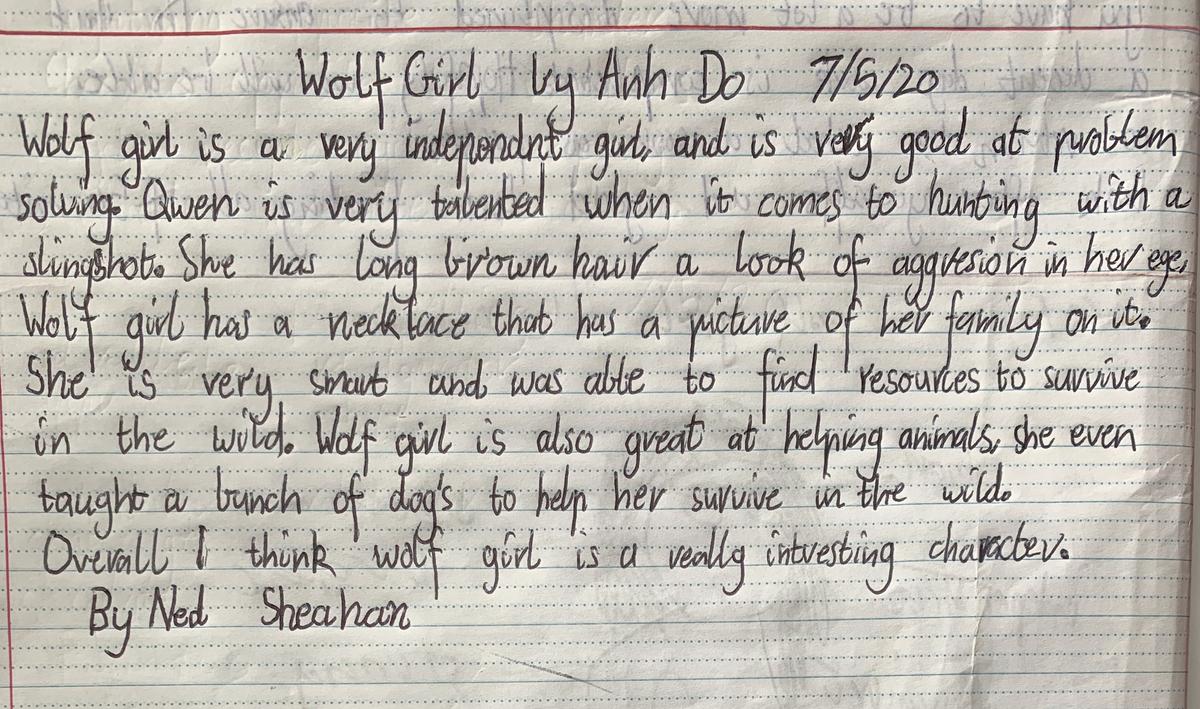 Wolf Girl by Anh Do 7/5/20
Wolf girl is a very indepondnt girl, and is very good at problem
solving. Qwen is very talented when it comes to hunting with a
slingshot. She has long brown hair a look of aggresion in her eye,
Wolf girl has a necklace that has a picture of her family on it.
She is very smart and was able to find resources to survive
in the wild. Wolf girl is also great at helping animals, she even
taught a bunch of dog's to help her survive in the wild.
Overall I think wolf girl is a really intresting character.
By Ned Sheahan